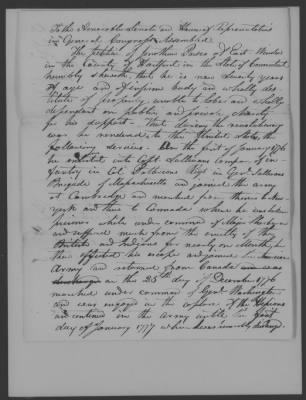 To the Honorable Senate and House of Representatives
in General Congress Assembled
The petition of Jonathan Pasco of East Windsor
in the County of Hartford in the State of Connecticut
humbly sheweth that he is now Seventy years
of age and Infirm body and wholly des
titute of property unable to labor and wholly
dependant on public and private Charity
for his support - That during the revolutionary
war he rendered to the United States, the
following services. On the first of January 1776
he enlisted into Capt Sullivans Company of in-
fantry in Col Regt in Genl Sullivans
Brigade of Massachusetts and joined the army
at Cambridge and marched from thence to New
york and then to Cannada where he was taken
prisoner while under command of Major
and suffered much from the cruelty of the
British and Indians for nearly a Month,
then effected his escape and joined the American
Army and returned from Canada
on the 25th day of December 1776
marched under command of Genl Washington
and was engaged in the capture of the Hessians
and continued in the army until the first
day of January 1777 when he was honorably discharged